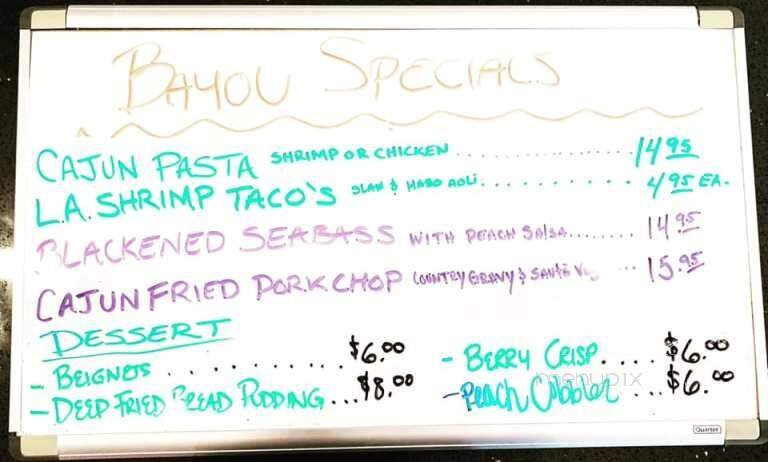 BAYOU SPECIALS
CAJUN PASTA SHRIMP OR CHICKEN .................. 14.95
L.A. SHRIMP TACO'S SLAW & HABO AOLI.......... 4.95 EA.
BLACKENED SEABASS WITH PEACH SALSA....... 14.95
CAJUN FRIED PORK CHOP COUNTRY GRAVY & ... 15.95
DESSERT
- BEIGNETS .......... $6.00
- DEEP FRIED BREAD PUDDING ... $8.00
- BERRY CRISP.... $6.00
- PEACH CobblER ... $6.00
menupix
Quartet